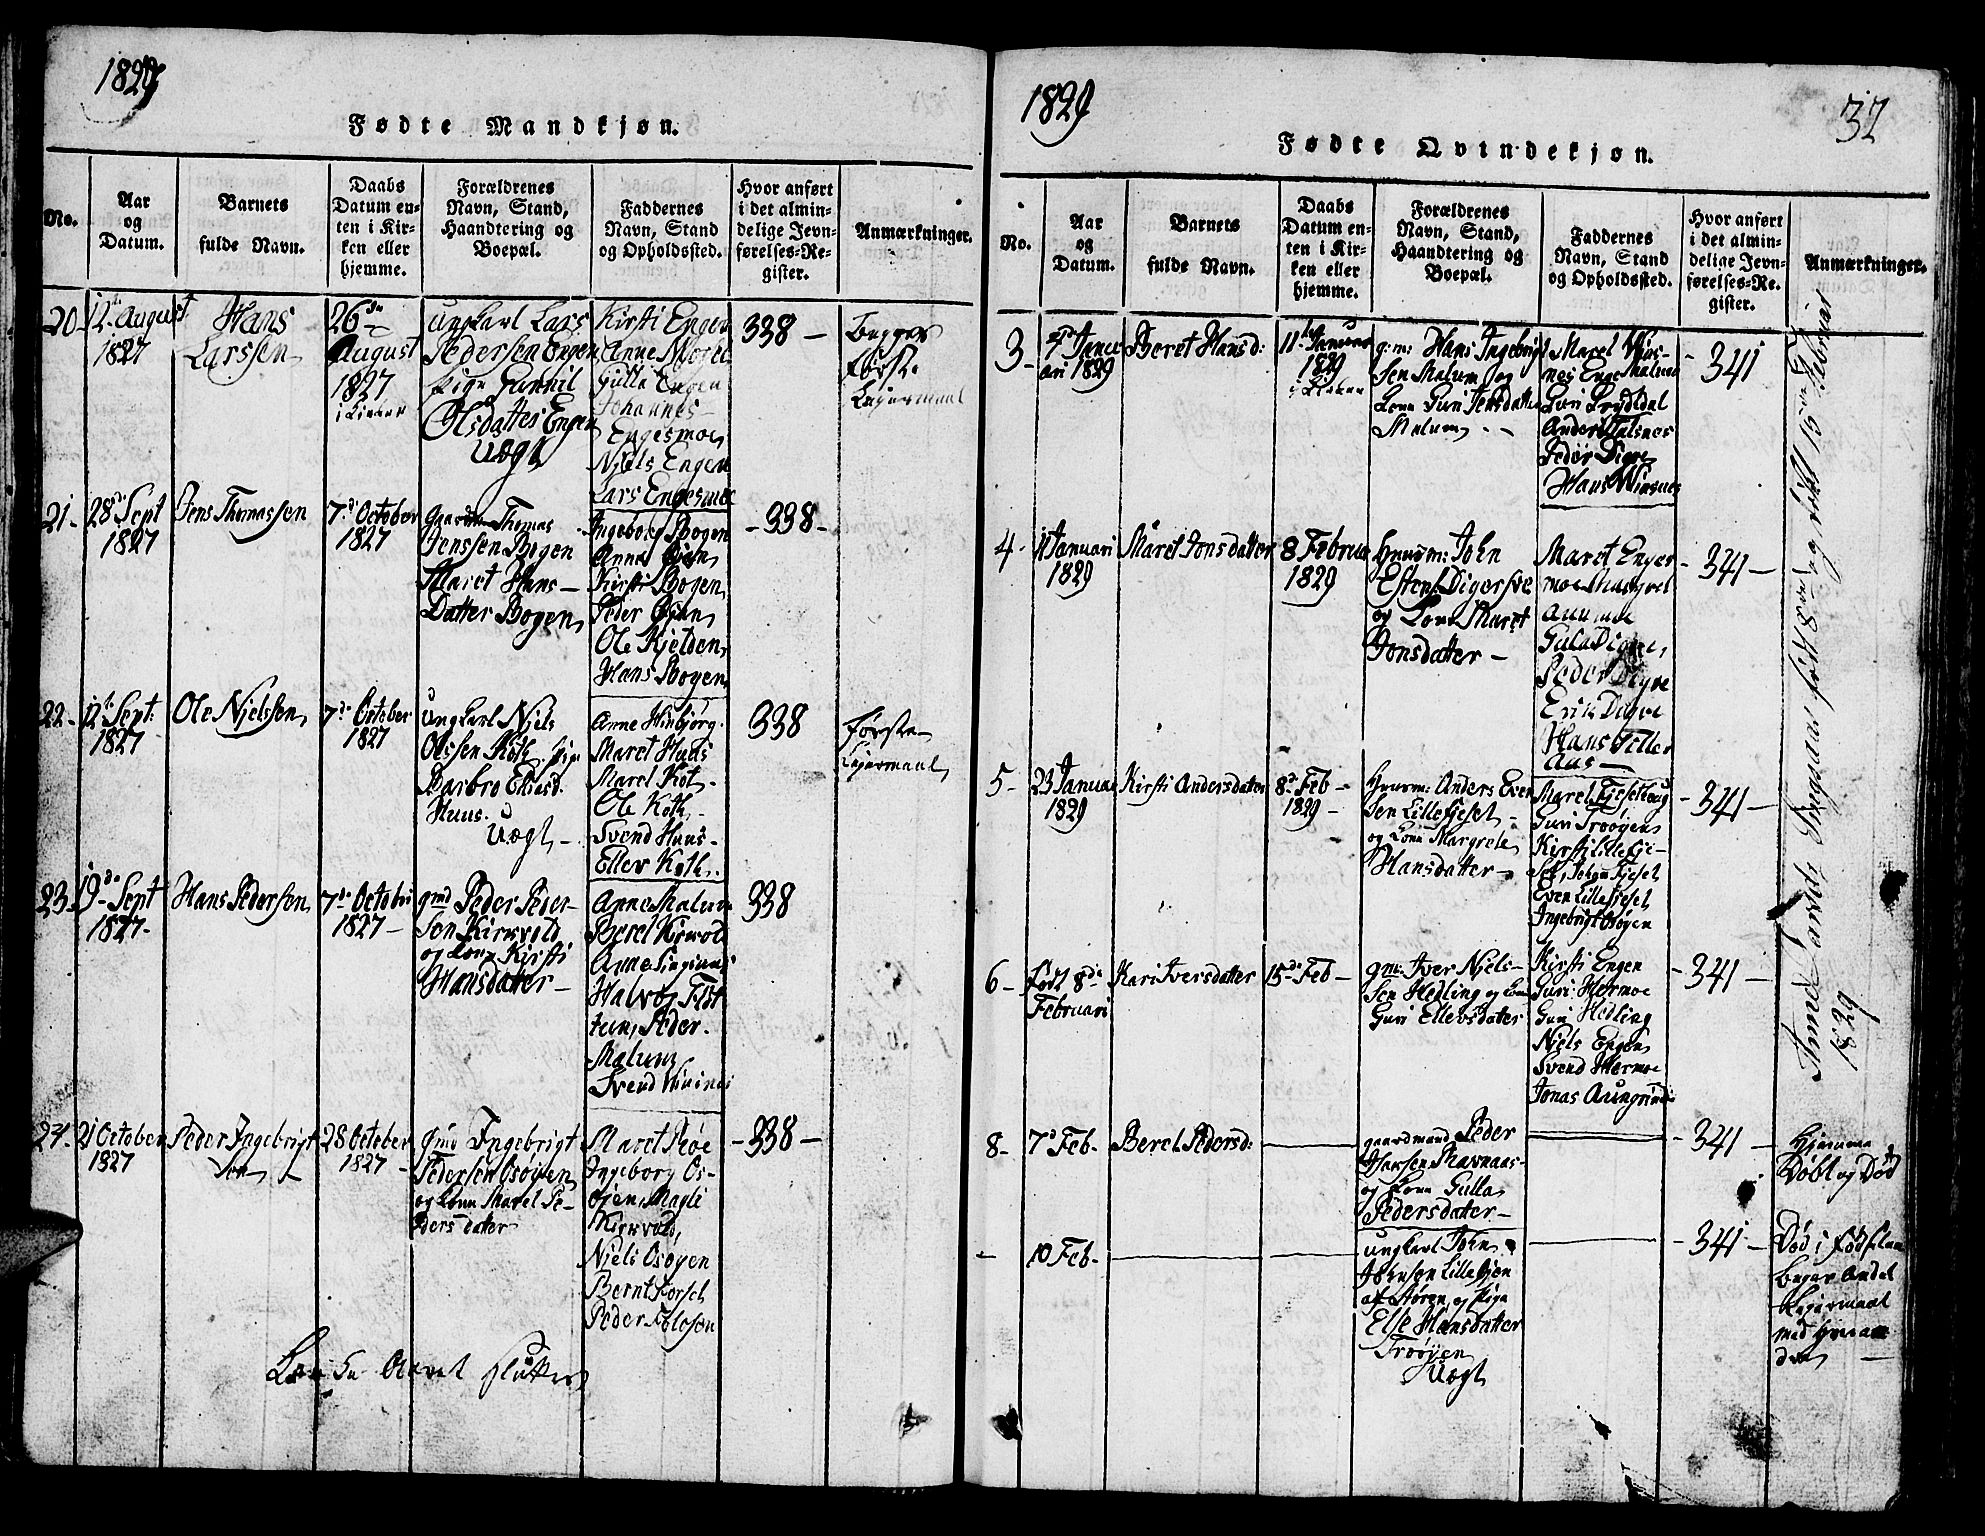 1827
Fødte Mandkjøn.
No.
Aar og Datum.
Barnets fulde Navn.
Daabs Datum enten i Kirken eller hjemme.
Forældrenes Navn, Stand, Haandtering og Boepæl.
Faddernes Navn, Stand og Opholdssted.
Hvor anført i det almindelige Jevnførelses-Register.
Anmærkninger.
20
12te August
1827
Hans
Larssen
26de
August
1827
i Kirken
Ungkarl Lars
Pedersen Engen
Pige Gunnil
Olsdatter Engen
Uægt
Kirsti Engen
Anne
Gulla Engen
Johannes
Engesmoe
Njels Engen
Lars Engesmoe
338 -
Begges
første
Lejermaal
21 -
28de Sept
1827
Jens Thomassen
7de October
1827
Thomas
Jenssen Bogen
Maret Hans-
Datter Bogen
Ingeborg Bogen
Anne Øien
Kirsti Bogen
Peder Øien
Ole Kjelden
Hans Bogen
- 338 -
22 -
12te Sept:
1827
Ole Njelssen
7de October
1827
Ungkarl Njels
Olssen Kotk, Pige
Barbro
Huus.
Uægt -
Anne
Maret Huus
Maret Kot
Ole Kotk
Svend Huus -
Ellev Kotk.
338
første
Lejermaal
23
19de Sept
1827 -
Hans Pedersen
7de Octobr
1827 -
gmd Peder Peder-
Sen Kirkvold
og Kone Kirsti
Hansdatter -
Anne Malum
Beret Kirkvold
Anne
Halvor
Peder
Malum
Svend
338
24 -
21 October
1827
Peder Ingebrigt
Sen
28 October
1827 -
gmd Ingebrigt
Pedersen Osøyen
og Kone Maret Pe-
dersdatter
Maret Røe
Ingeborg Os-
øjen, Magli
Kirkvold,
Niels Osøyen
Bernt Korset
Peder
- 338 -
Aaret sluttes
1829
37
Fødte Qvindekjøn.
No.
Aar og Datum.
Barnets fulde Navn.
Daabs Datum enten i Kirken eller hjemme.
Forældrenes Navn, Stand, Haandtering og Boepæl.
Faddernes Navn, Stand og Opholdssted.
Hvor anført i det almindelige Jevnførelses-Register.
Anmærkninger.
3 -
4de Janu
ari 1829
Beret Hansd:
11te Januar
1829
i Kirken
g:m: Hans Ingebrigt
Sen Malum og
Kone Guri Jensdatter
Malum -
Maret
Malum
Guri
Anders
Peder Digre
Hans Winsnes
- 341
4 -
11 Januari
1829
Maret Jonsdatter
8 Februa
1829
Huusm: John
Estens Digersve
og Kone Maret
Jonsdatter -
Maret Enges
moe
Aunmoe
Gula Digre
Peder Digre
Erik Digre
Hans Teller
Aas -
- 341 -
5 -
23 Januar
1829
Kirsti Andersdatter
8de Feb -
1829 -
Huusm: Anders Even
Sen Lillefjeset
og Kone Margrete
Hansdatter -
Maret Fjesethaug
Guri Troøyen
Kirsti Lillefje-
Set, John Fjeset
Even Lillefjeset
Ingebrigt Osøyen
- 341 -
6 -
Født 8de
Februari
Kari Iversdatter
15de Feb -
gm: Iver Njels-
Sen Hedling og Kone
Guri Ellevsdatter
Kirsti Engen
Guri Hermoe
Guri Hedling
Njels Engen
Svend Hermoe
Jonas Aungrind
- 341 -
8 -
7de Feb -
Beret Pedersd:
gaardmand Peder
Ravnaas
og Kone Gulla
Pedersdatter -
- 341 -
Hjemme
Døbt og Død
-
10 Feb -
Ungkarl John
Lilleøjen
af Støren, og Pige
Else Hansdatter
Troøyen
Uægt
- 341 -
Død i Fødselen
begges Andet
Lejermaal
med hinan
den -
født 8de og døbt 15de Februar
1829